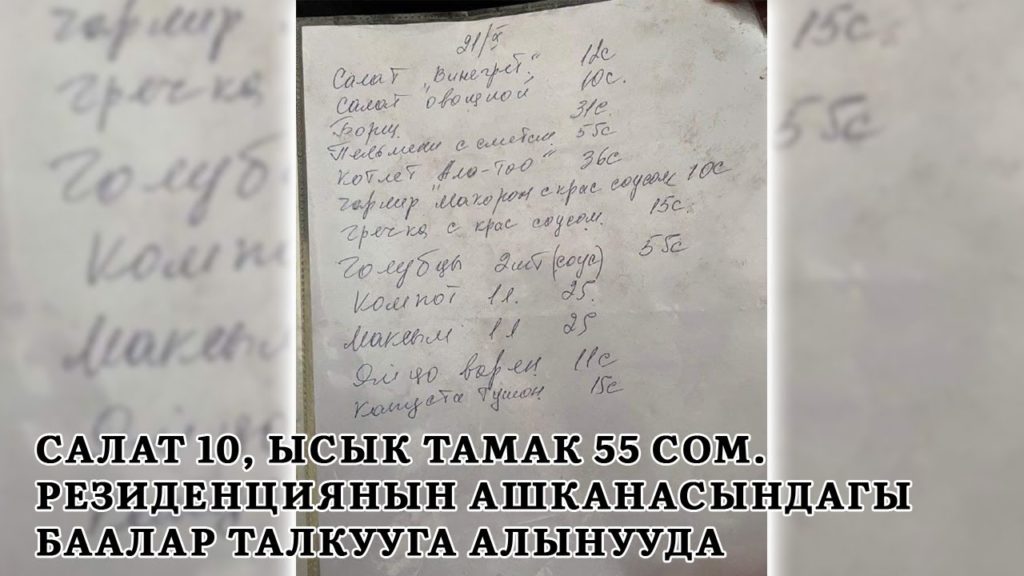 21/X
Салат "Винегрет" 12с
Салат "овощной" 10с.
Борщ 31с
Пельмени с сметан 55с
Котлет "Ала-Тоо" 36с
гарнир "Макорон с крас соусом 10с
гречка с крас соусом. 15с.
Голубцы 2шт (соус) 55с
Компот 1л. 25.
Максым 1л 25
Яйцо варен 11с
Капуста Тушон 15с
САЛАТ 10, ЫСЫК ТАМАК 55 СОМ.
РЕЗИДЕНЦИЯНЫН АШКАНАСЫНДАГЫ
БААЛАР ТАЛКУУГА АЛЫНУУДА